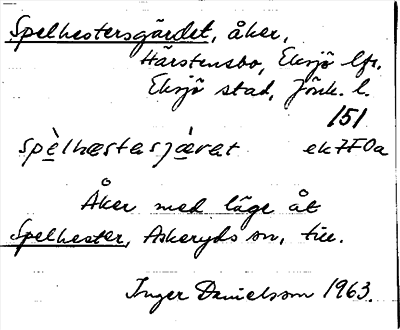 Spelhestersgärdet, åker,
Härstensbo, Eksjö lfs.
Eksjö stad, Jönk. l.
151
spèlhæstasjæ̀rat ek7F0a
Åker med läge åt
Spelhester, Askeryds sn, till.
Inger Danielsson 1963.